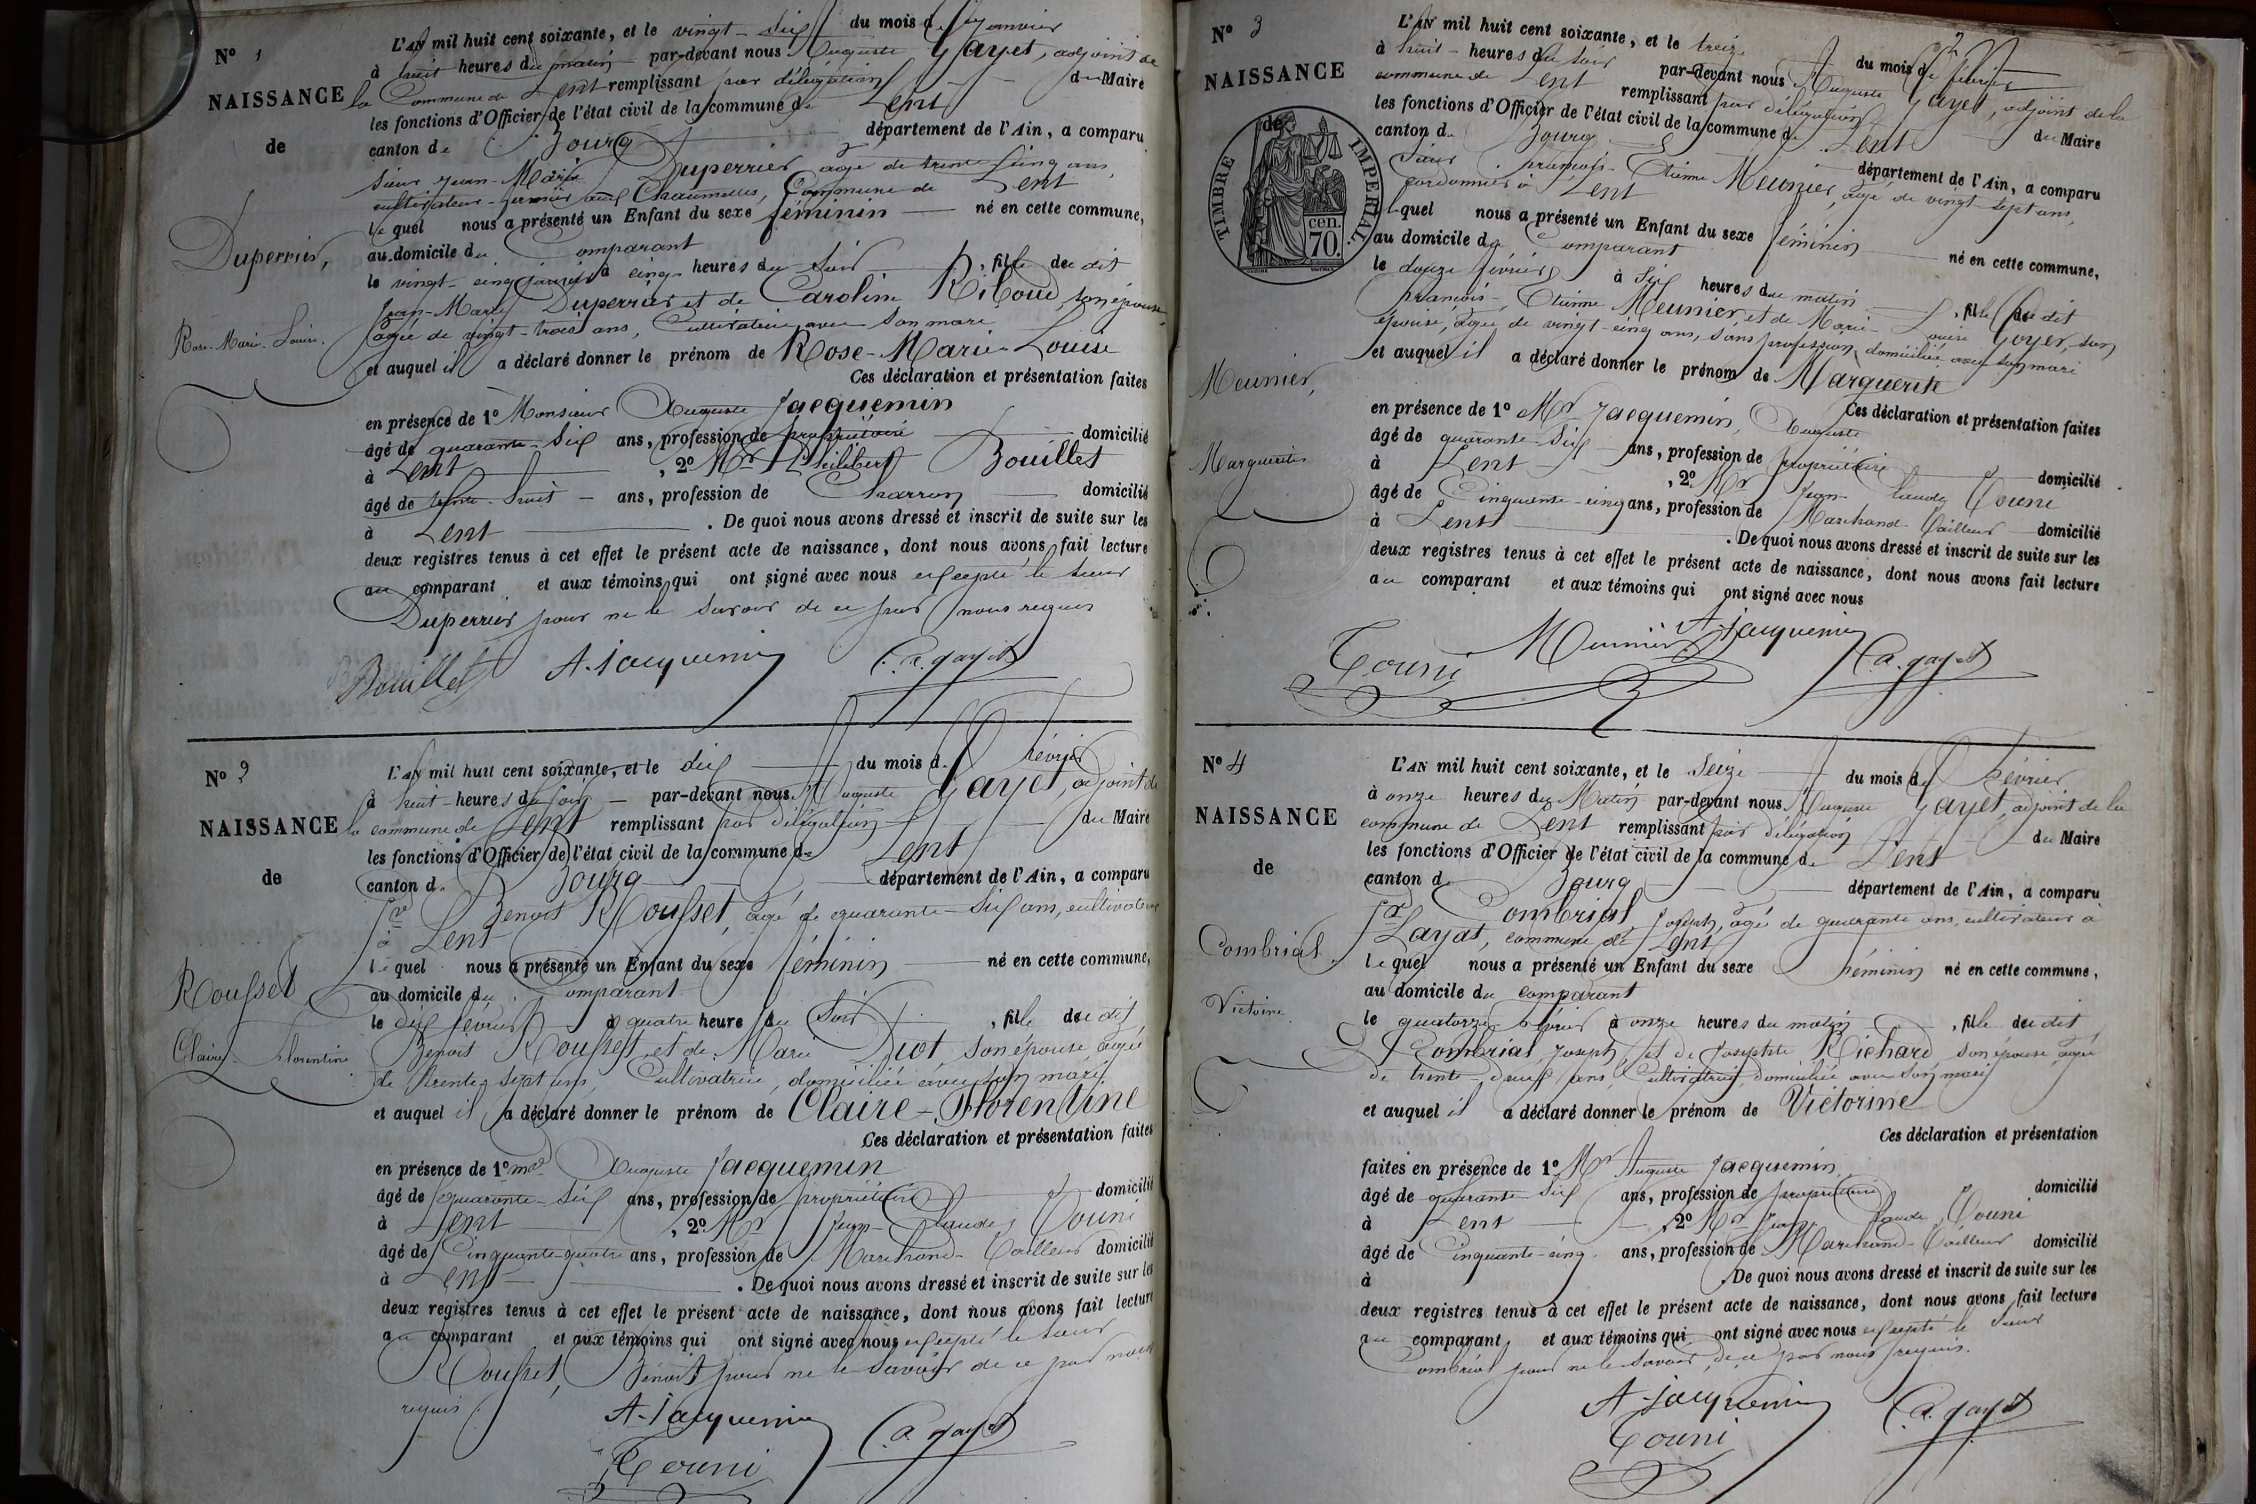 N° 1
NAISSANCE
de
Duperrier,
Rose-Marie-Louise.
L'AN mil huit cent soixante, et le vingt-six du mois de Janvier
à huit heures du matin par-devant nous Auguste Gayet, adjoint de
la Commune de Lent remplissant par délégation du Maire
les fonctions d'Officier de l'état civil de la commune de Lent
canton de Bourg département de l'Ain, a comparu
Sieur Jean-Marie Duperrier âgé de trente cinq ans,
cultivateur-fermier aux Chaumelles, Commune de Lent
lequel nous a présenté un Enfant du sexe féminin né en cette commune,
au domicile du Comparant
le vingt-cinq janvier à cinq heures du Soir, fille du dit
Jean-Marie Duperrier et de Caroline Riboud, son épouse,
âgée de vingt-trois ans, Cultivatrice avec son mari
et auquel il a déclaré donner le prénom de Rose-Marie-Louise
Ces déclaration et présentation faites
en présence de 1° Monsieur Auguste Jacquemin
âgé de quarante-six ans, profession de propriétaire domicilié
à Lent, 2° Mr Philibert Bouillet
âgé de trente-huit ans, profession de Charron domicilié
à Lent. De quoi nous avons dressé et inscrit de suite sur les
deux registres tenus à cet effet le présent acte de naissance, dont nous avons fait lecture
au comparant et aux témoins qui ont signé avec nous excepté le sieur
Duperrier pour ne le savoir de ce par nous requis
Bouillet A. Jacquemin A. gayet
N° 2
NAISSANCE
de
Rousset
Claire-Florentine
L'AN mil huit cent soixante, et le dix du mois de Février
à huit heures du soir par-devant nous Auguste Gayet, adjoint de
la commune de Lent remplissant par délégation du Maire
les fonctions d'Officier de l'état civil de la commune de Lent
canton de Bourg département de l'Ain, a comparu
Sr Benoit Rousset, âgé de quarante-six ans, cultivateur
à Lent
lequel nous a présenté un Enfant du sexe féminin né en cette commune,
au domicile du Comparant
le dix février à quatre heure du Soir, fille du dit
Benoit Rousset et de Marie Diot, son épouse âgée
de trente-sept ans, Cultivatrice, domiciliée avec son mari
et auquel il a déclaré donner le prénom de Claire-Florentine
Ces déclaration et présentation faites
en présence de 1° Auguste Jacquemin
âgé de quarante-six ans, profession de propriétaire domicilié
à Lent, 2° Mr Jean-Claude Touni
âgé de Cinquante-quatre ans, profession de Marchand-Tailleur domicilié
à Lent. De quoi nous avons dressé et inscrit de suite sur les
deux registres tenus à cet effet le présent acte de naissance, dont nous avons fait lecture
au comparant et aux témoins qui ont signé avec nous excepté le sieur
Rousset, Benoit pour ne le Savoir de ce par nous
requis.
A. Jacquemin A. gayet
Touni
2
N° 3
NAISSANCE
de
TIMBRE IMPERIAL.
cen. 70.
Meunier,
Marguerite
L'AN mil huit cent soixante, et le treize du mois de février
à huit heures du soir par-devant nous Auguste Gayet, adjoint de la
commune de Lent remplissant par délégation du Maire
les fonctions d'Officier de l'état civil de la commune de Lent
canton de Bourg département de l'Ain, a comparu
Sieur François-Etienne Meunier, âgé de vingt sept ans,
cordonnier à Lent
lequel nous a présenté un Enfant du sexe féminin né en cette commune,
au domicile du Comparant
le douze février à six heures du matin, fille du dit
François-Etienne Meunier et de Marie-Louise Goyer, son
épouse, âgée de vingt-cinq ans, sans profession, domiciliée avec son mari
et auquel il a déclaré donner le prénom de Marguerite
Ces déclaration et présentation faites
en présence de 1° Mr Jacquemin, Auguste
âgé de quarante-six ans, profession de propriétaire domicilié
à Lent, 2° Mr Jean-Claude Touni
âgé de Cinquante-cinq ans, profession de Marchand-Tailleur domicilié
à Lent. De quoi nous avons dressé et inscrit de suite sur les
deux registres tenus à cet effet le présent acte de naissance, dont nous avons fait lecture
au comparant et aux témoins qui ont signé avec nous
Touni Meunier A. Jacquemin A. gayet
N° 4
NAISSANCE
de
Combrial.
Victoire
L'AN mil huit cent soixante, et le Seize du mois de Février
à onze heures du Matin par-devant nous Auguste Gayet, adjoint de la
commune de Lent remplissant par délégation du Maire
les fonctions d'Officier de l'état civil de la commune de Lent
canton de Bourg département de l'Ain, a comparu
Sr Combrial Joseph, âgé de quarante ans, cultivateur à
Layat, commune de Lent
lequel nous a présenté un Enfant du sexe féminin né en cette commune,
au domicile du comparant
le quatorze février à onze heures du matin, fille du dit
Combrial Joseph et de Josephte Richard son épouse âgée
de trente deux ans Cultivatrice, domiciliée avec son mari
et auquel il a déclaré donner le prénom de Victorine
Ces déclaration et présentation
faites en présence de 1° Mr Auguste Jacquemin
âgé de quarante six ans, profession de propriétaire domicilié
à Lent, 2° Mr Jean Claude Touni
âgé de Cinquante-cinq ans, profession de Marchand-Tailleur domicilié
à . De quoi nous avons dressé et inscrit de suite sur les
deux registres tenus à cet effet le présent acte de naissance, dont nous avons fait lecture
au comparant, et aux témoins qui ont signé avec nous excepté le Sieur
Combrial pour ne le Savoir, de ce par nous requis.
A. Jacquemin A. gayet
Touni